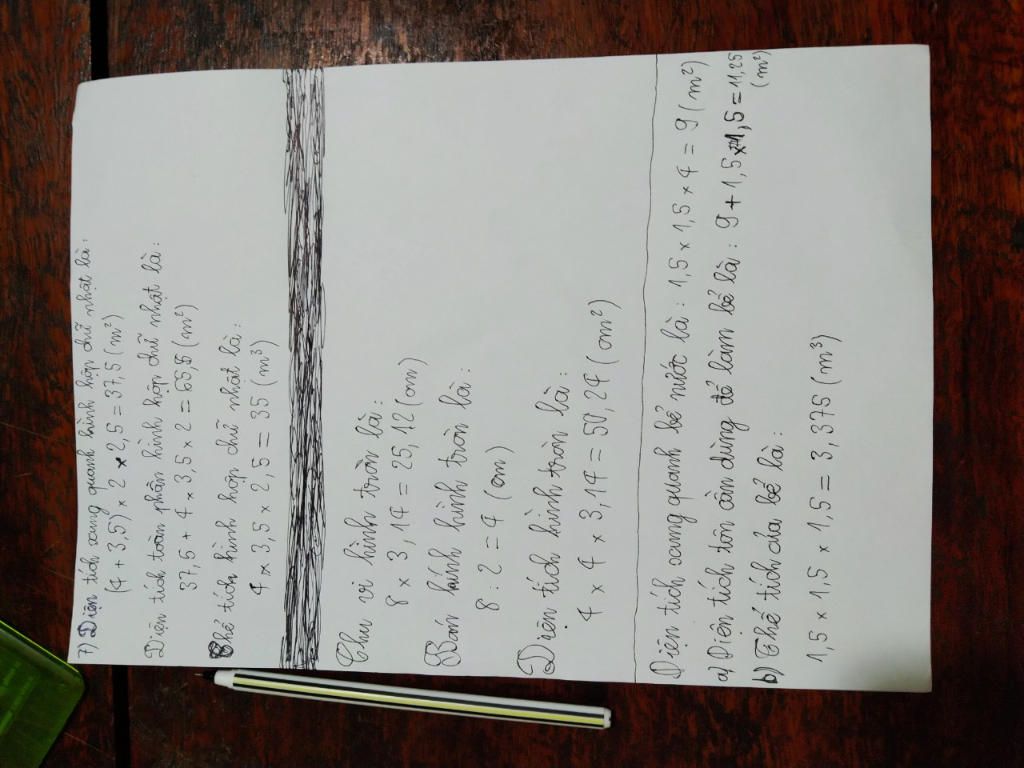 7) Diện tích xung quanh hình hộp chữ nhật là:
(4 + 3,5) × 2 × 2,5 = 37,5 (m²)
Diện tích toàn phần hình hộp chữ nhật là:
37,5 + 4 × 3,5 × 2 = 65,5 (m²)
Thể tích hình hộp chữ nhật là:
4 × 3,5 × 2,5 = 35 (m³)
Chu vi hình tròn là:
8 × 3,14 = 25,12 (cm)
Bán kính hình tròn là:
8 : 2 = 4 (cm)
Diện tích hình tròn là:
4 × 4 × 3,14 = 50,24 (cm²)
Diện tích xung quanh bể nước là: 1,5 × 1,5 × 4 = 9 (m²)
a) Diện tích tôn cần dùng để làm bể là: 9 + 1,5 × 1,5 = 11,25
(m²)
b) Thể tích của bể là:
1,5 × 1,5 × 1,5 = 3,375 (m³)